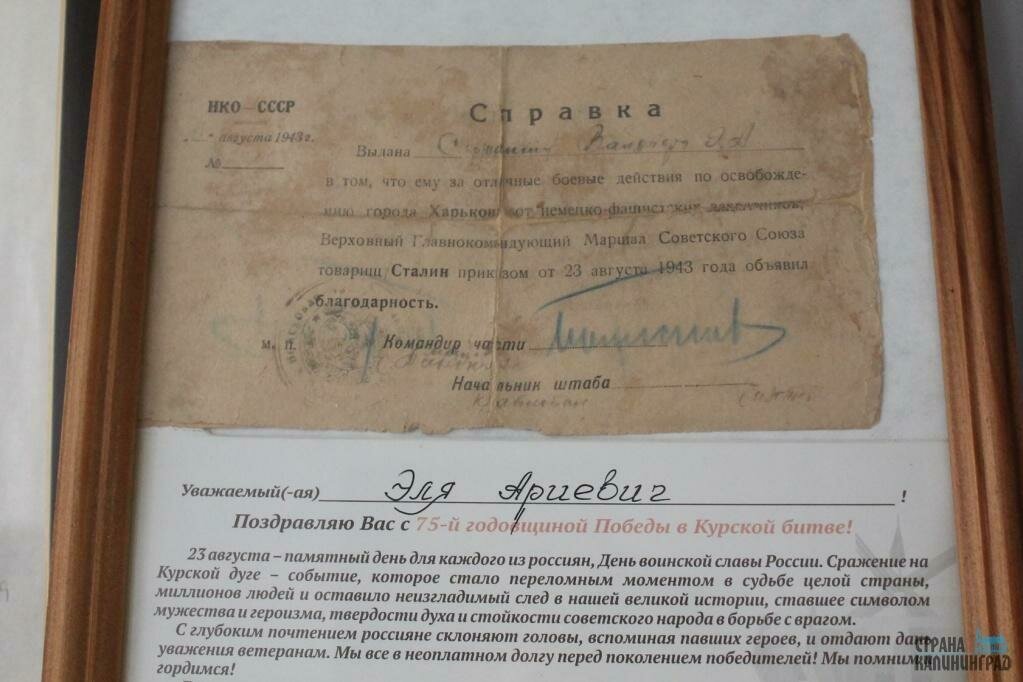 НКО — СССР
Справка
августа 1943 г.
№
Выдана
в том, что ему за отличные боевые действия по освобожде-
нию города Харькова от немецко-фашистских захватчиков,
Верховный Главнокомандующий Маршал Советского Союза
товарищ Сталин приказом от 23 августа 1943 года объявил
благодарность.
м. п. Командир части
Начальник штаба
Уважаемый(-ая) Эля Ариевич !
Поздравляю Вас с 75-й годовщиной Победы в Курской битве!
23 августа – памятный день для каждого из россиян, День воинской славы России. Сражение на
Курской дуге – событие, которое стало переломным моментом в судьбе целой страны,
миллионов людей и оставило неизгладимый след в нашей великой истории, ставшее символом
мужества и героизма, твердости духа и стойкости советского народа в борьбе с врагом.
С глубоким почтением россияне склоняют головы, вспоминая павших героев, и отдают дань
уважения ветеранам. Мы все в неоплатном долгу перед поколением победителей! Мы помним и
гордимся!
СТРАНА
КАЛИНИНГРАД